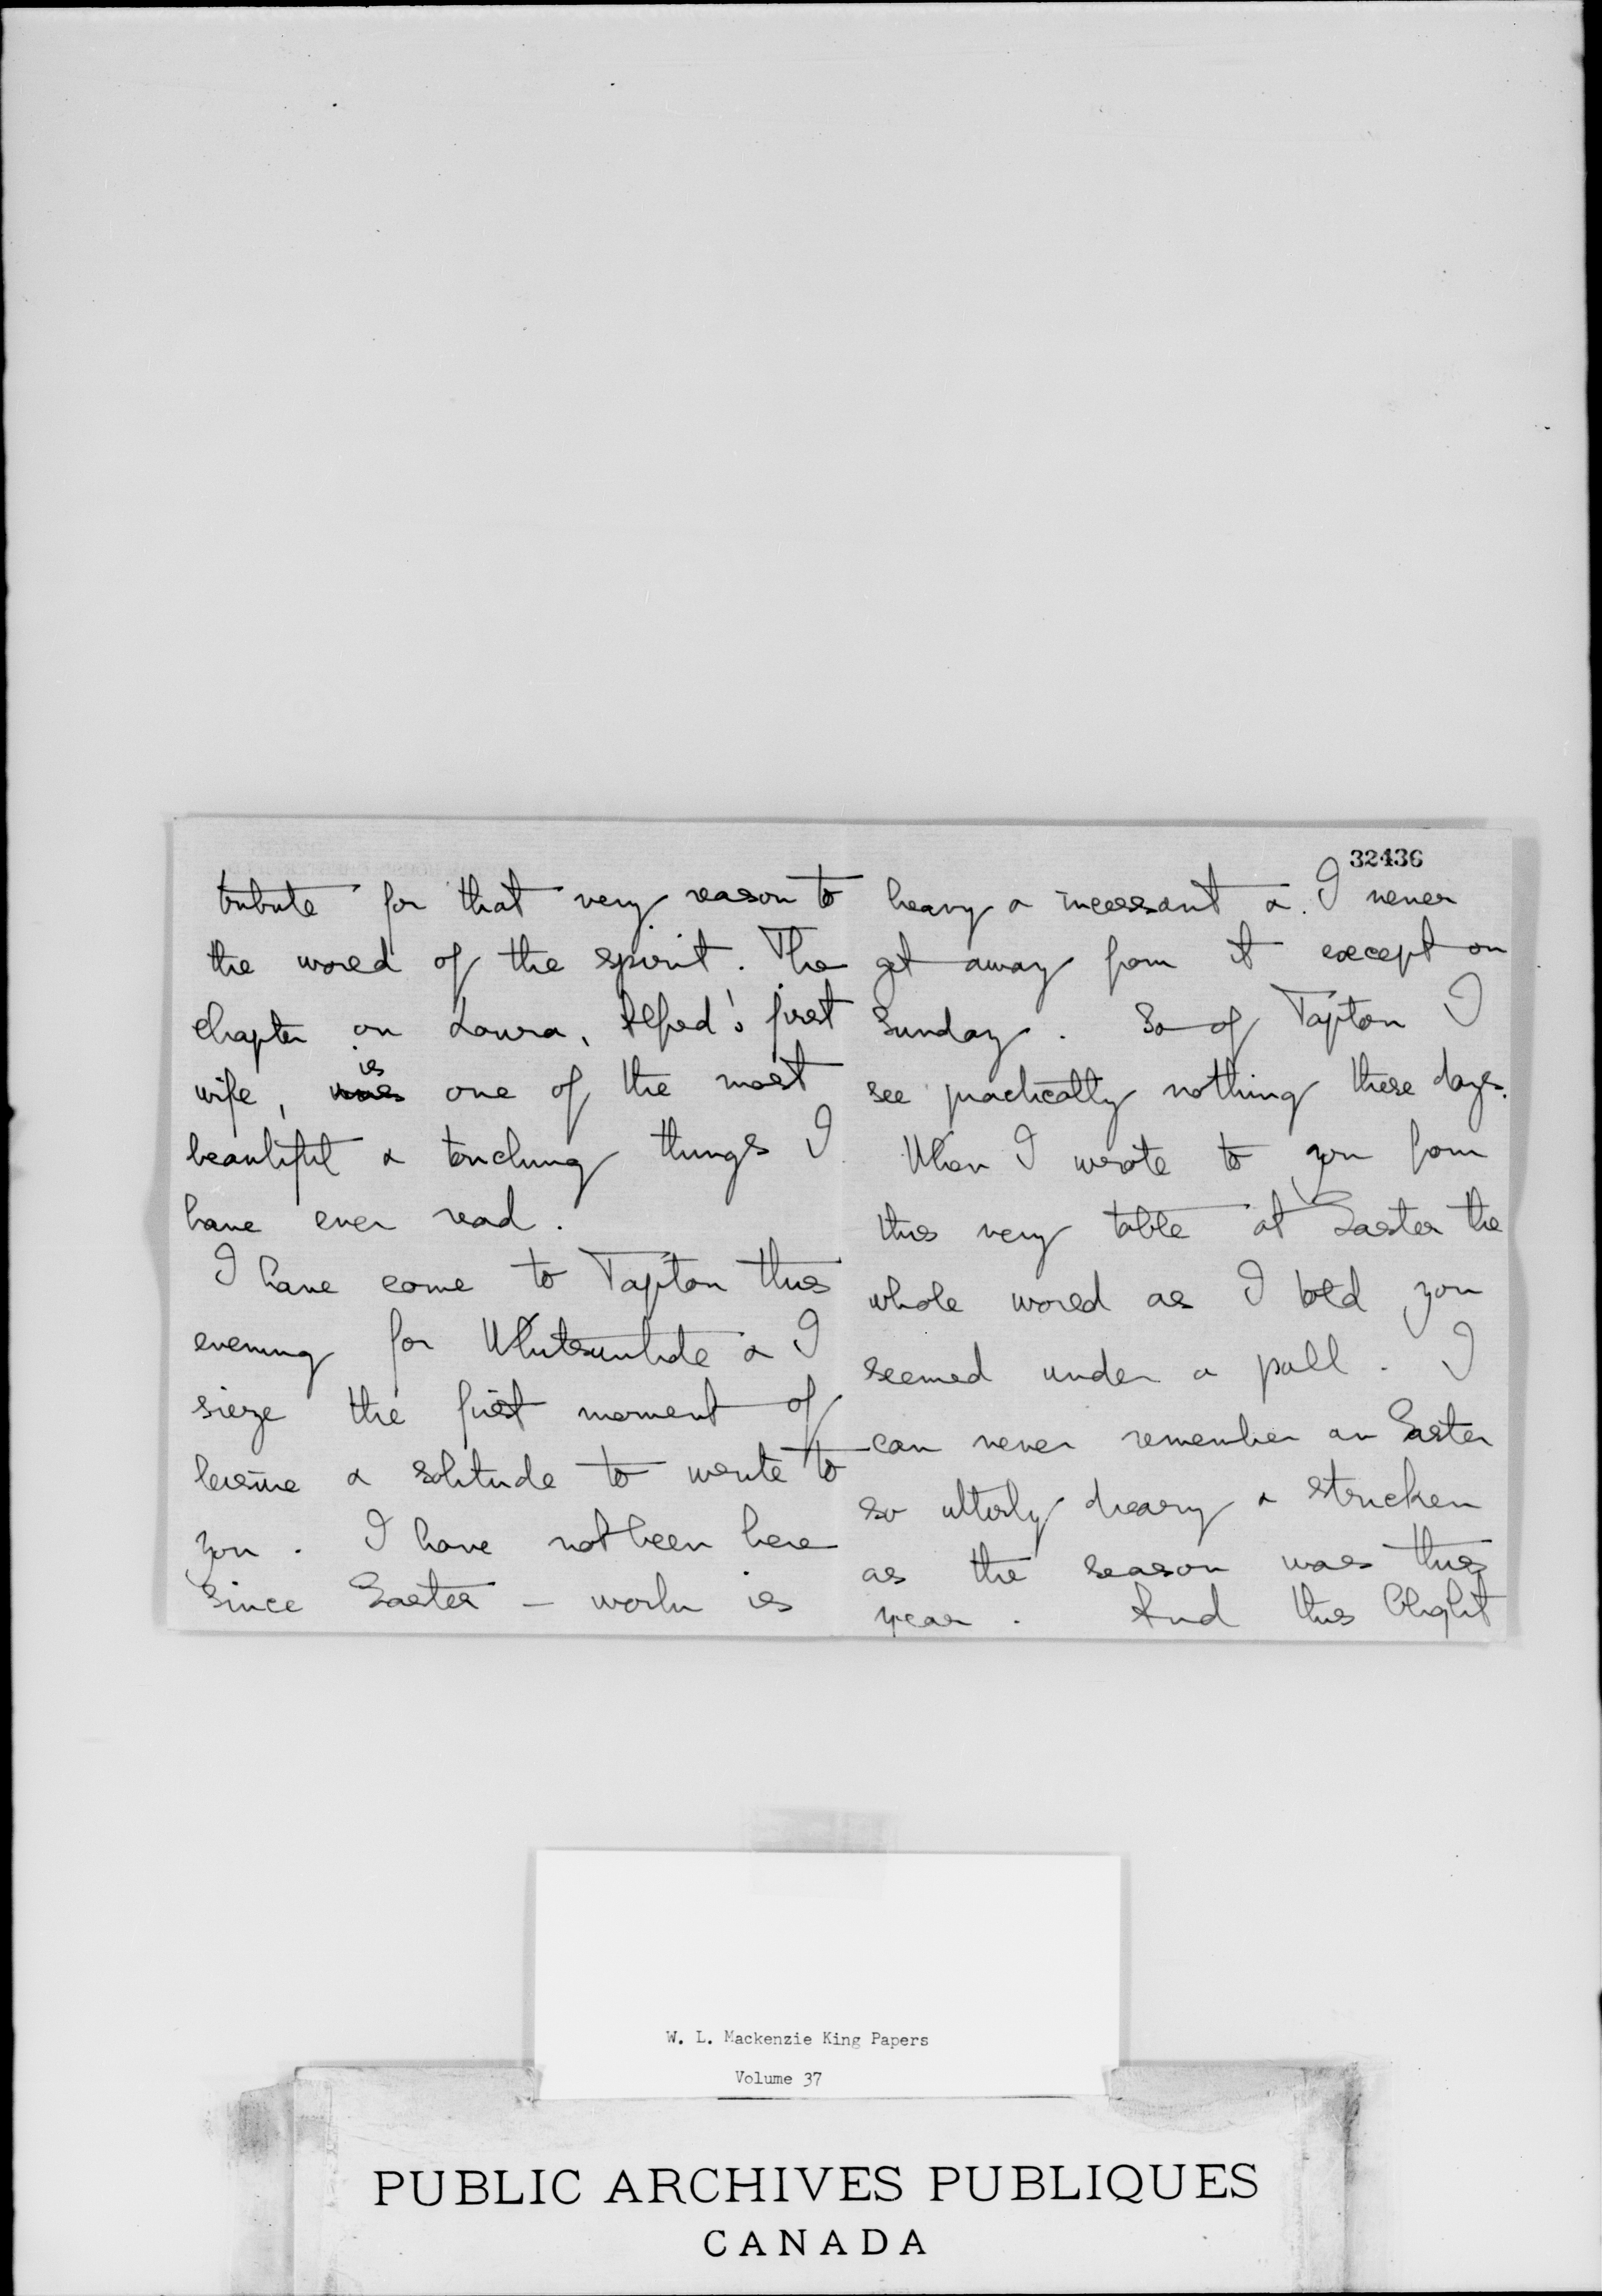 32436
tribute for that very reason to
the world of the spirit. The
chapter on Laura, Alfred's first
wife, was is one of the most
beautiful & touching things I
have ever read.
I have come to Tapton this
evening for Whitsuntide & I
sieze the first moment of
leisure & solitude to write to
you. I have not been here
since Easter – work is
heavy & incessant & I never
get away from it except on
Sunday. So of Tapton I
see practically nothing these days.
When I wrote to you from
this very table at Easter the
whole world as I told you
seemed under a pall. I
can never remember an Easter
so utterly dreary & stricken
as the season was this
year. And this blight
W. L. Mackenzie King Papers
Volume 37
PUBLIC ARCHIVES PUBLIQUES
CANADA